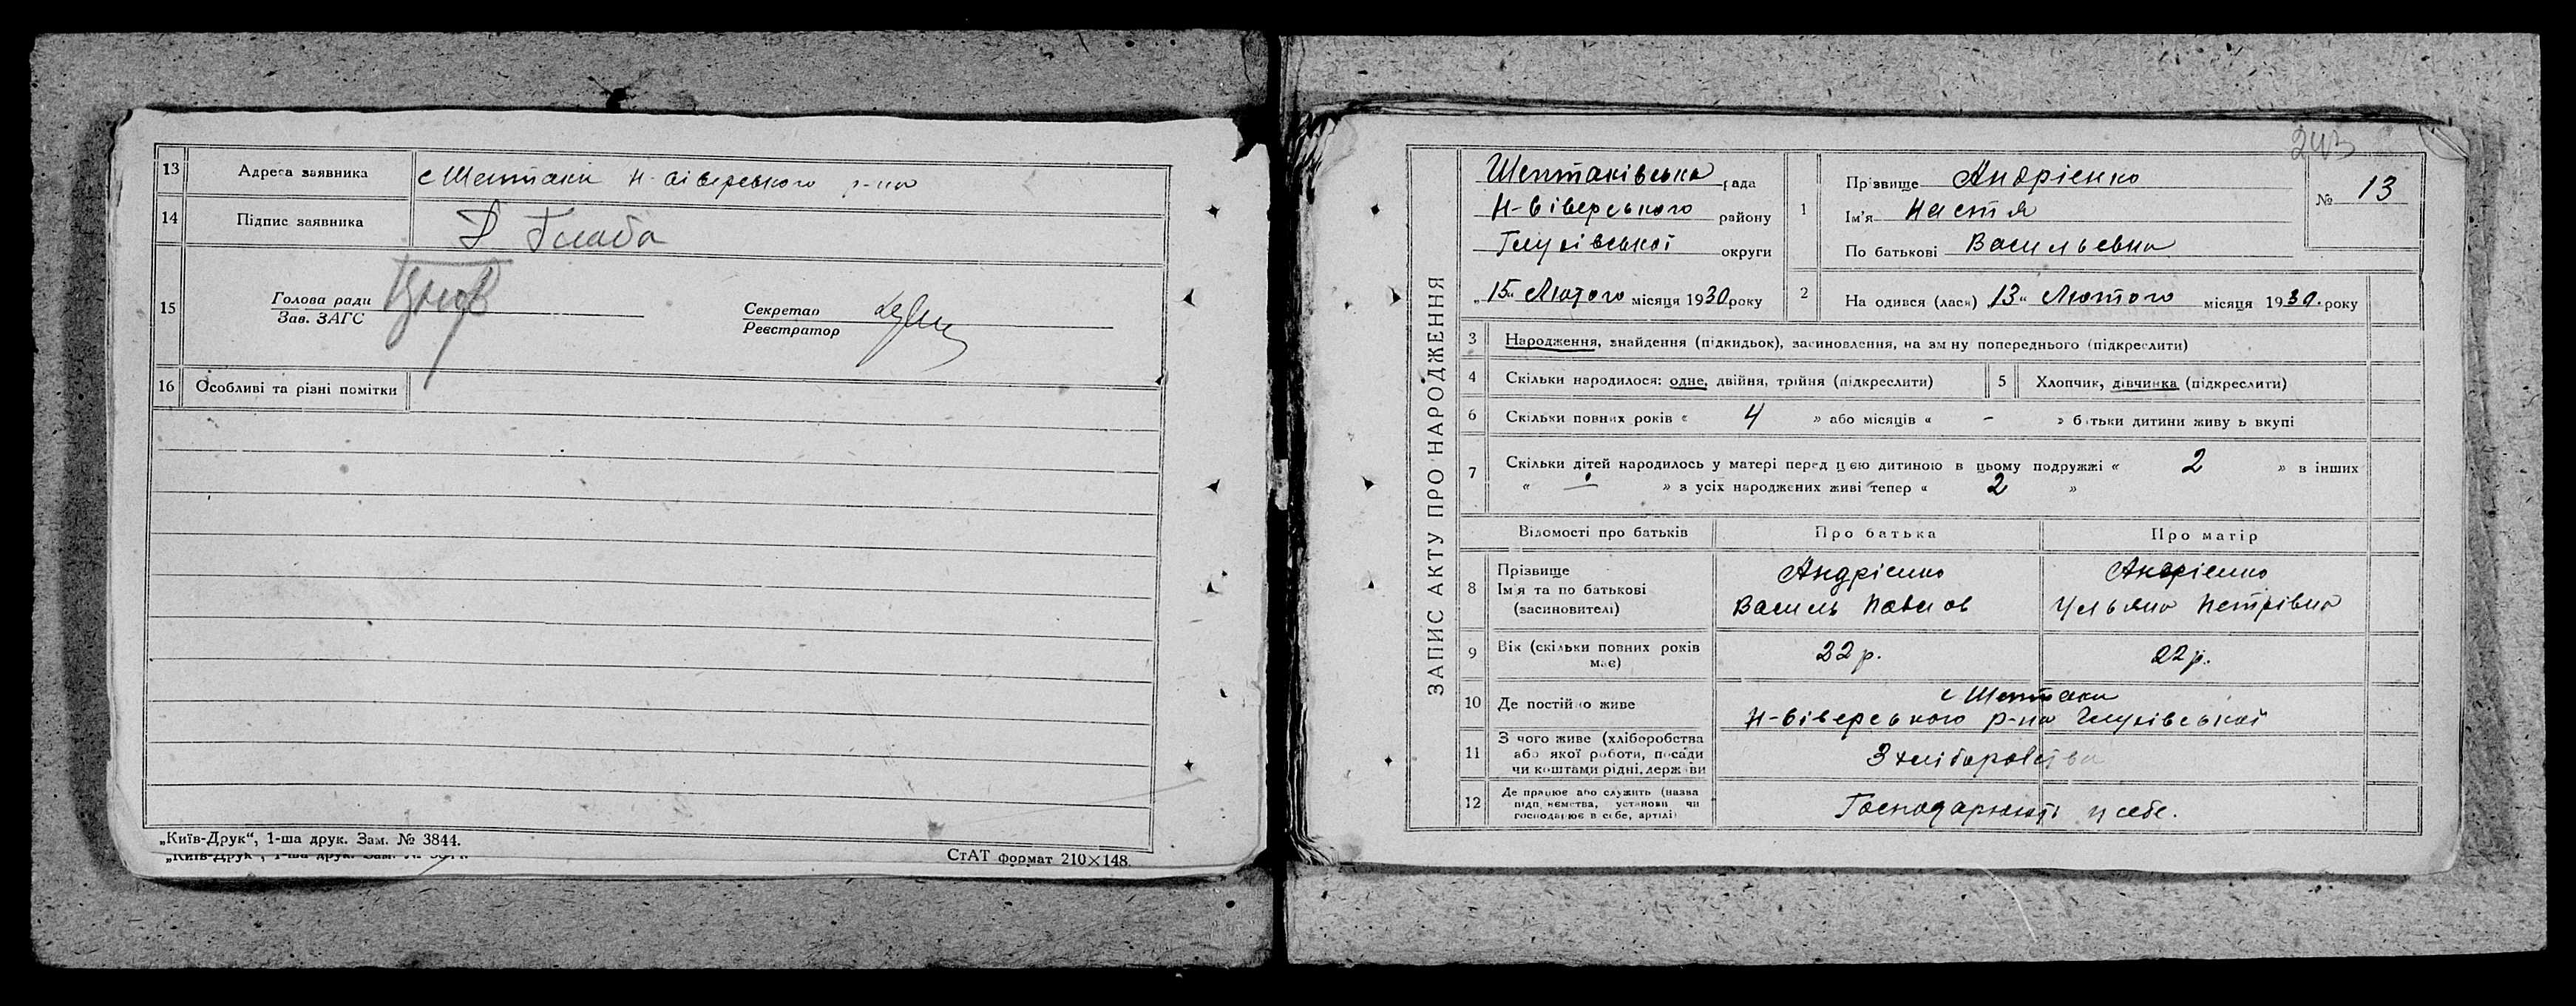 13 Адреса заявника с Шептаки Н-Сіверського р-на
14 Підпис заявника Глаба
15 Голова ради
Зав. ЗАГС
Секретар
Реєстратор
16 Особливі та різні помітки
„Київ-Друк“, 1-ша друк. Зам. № 3844.
СтАТ формат 210×148.
243
ЗАПИС АКТУ ПРО НАРОДЖЕННЯ
Шептаківська рада
Н-Сіверського району
Глухівської округи
„15“ Лютого місяця 1930 року
1 Прізвище Андрієнко
Ім'я Настя
По батькові Васильевна
№ 13
2 На одився (лася) 13“ Лютого місяця 1930. року
3 Народження, знайдення (підкидьок), засиновлення, на зміну попереднього (підкреслити)
4 Скільки народилося: одне, двійня, трійня (підкреслити)
5 Хлопчик, дівчинка (підкреслити)
6 Скільки повних років « 4 » або місяців « - » батьки дитини живуть вкупі
7 Скільки дітей народилось у матері перед цією дитиною в цьому подружжі « 2 » в інших
« — » з усіх народжених живі тепер « 2 »
Відомості про батьків Про батька Про матір
8 Прізвище
Ім'я та по батькові
(засиновителі)
Андрієнко
Василь Павлов
Андрієнко
Ульяна Петрівна
9 Вік (скільки повних років
має)
22 р. 22 р.
10 Де постійно живе
с Шептаки
Н-Сіверського р-на Глухівської
11 З чого живе (хліборобства
або якої роботи, посади
чи коштами рідні, держави
З хліборобства
12 Де працює або служить (назва
підприємства, установи чи
господарює в себе, артілі)
Господарюють у себе.